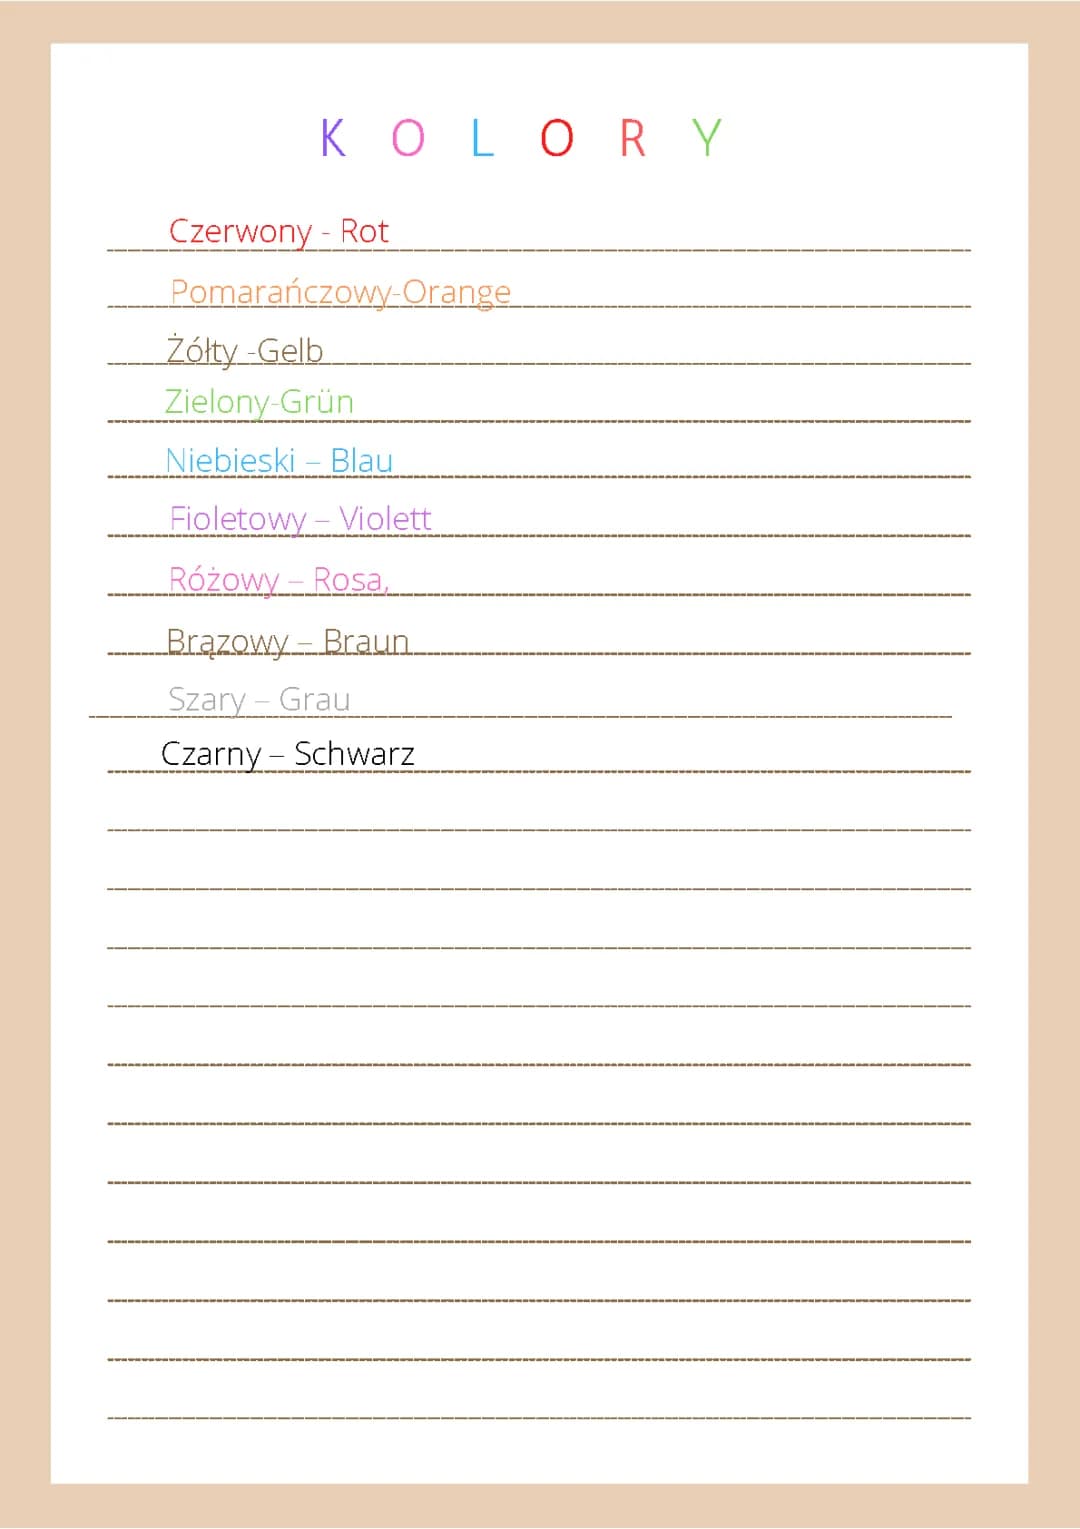 K O L O R Y
Czerwony - Rot
Pomarańczowy-Orange
Żółty -Gelb
Zielony-Grün
Niebieski – Blau
Fioletowy – Violett
Różowy – Rosa,
Brązowy – Braun
Szary – Grau
Czarny – Schwarz